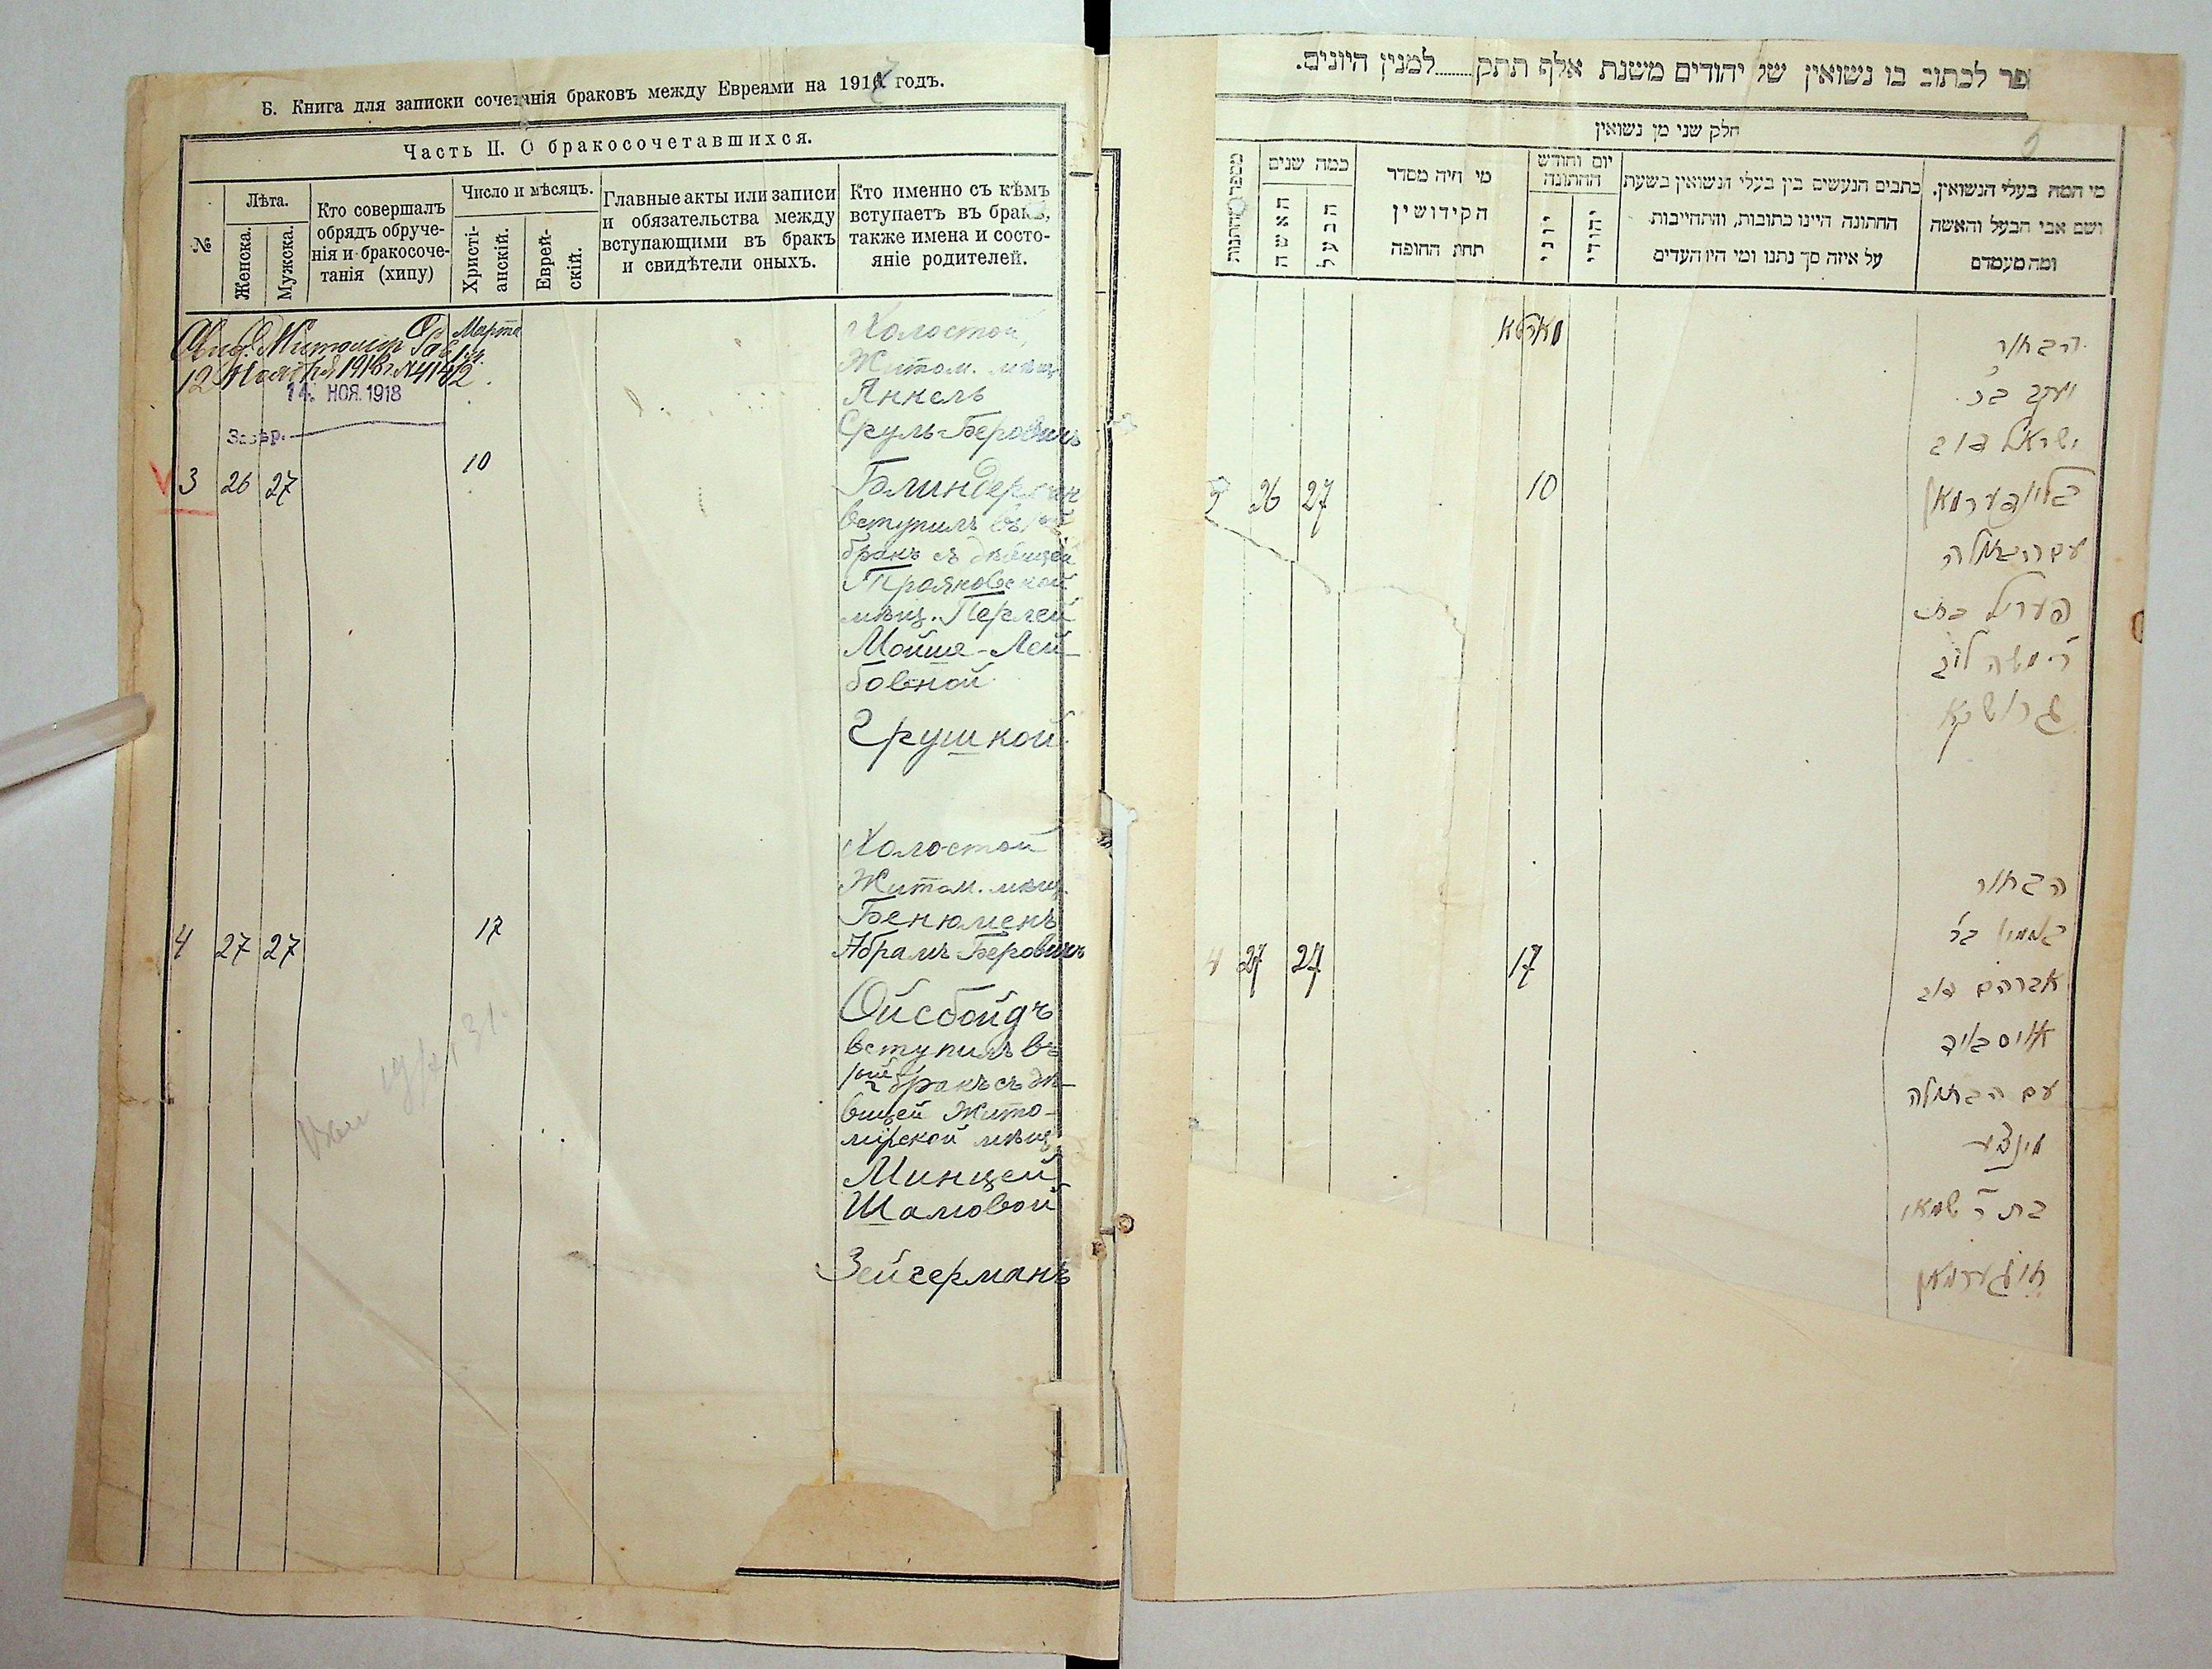 Б. Книга для записки сочетанія браковъ между Евреями на 1917 годъ.
Часть II. О бракосочетавшихся.
№
Лѣта.
Женска.
Мужска.
Кто совершалъ
обрядъ обруче-
нія и бракосоче-
танія (хипу)
Число и мѣсяцъ.
Христі-
анскій.
Еврей-
скій.
Главные акты или записи
и обязательства между
вступающими въ бракъ
и свидѣтели оныхъ.
Кто именно съ кѣмъ
вступаетъ въ бракъ,
также имена и состо-
яніе родителей.
Марта
12 Ноября 1918 г. №
14. НОЯ. 1918
Завѣр.
3 26 27 10
Холостой,
Житом. мѣщ.
Янкель
Сруль-Беровичъ
Блиндерман
вступилъ въ 1ый
бракъ съ дѣвицей
Трояновской
мѣщ. Перлей
Мойше-Лей-
бовной
Грушкой
4 27 27 17
Холостой
Житом. мѣщ.
Бенюменъ
Абрамъ-Беровичъ
Ойсбойдъ
вступилъ въ
1ый бракъ съ дѣ-
вицей Жито-
мірской мѣщ.
Минцей
Шамовой
Зейгерманъ
פר לכתוב בו נשואין של יהודים משנת אלף תתק........למנין היונים.
חלק שני מן נשואין
מספר החתונות
כמה שנים
האשה
הבעל
מי היה מסדר
הקידושין
תחת החופה
יום וחודש
החתונה
יוני
יהודי
כתבים הנעשים בין בעלי הנשואין בשעת
החתונה היינו כתובות, והתחייבות
על איזה סך נתנו ומי היו העדים
מי המה בעלי הנשואין,
ושם אבי הבעל והאשה
ומה מעמדם
מארטא
26 27 10
הבחור
יעקב בר
ישראל דוב
בלינדערמאן
עם הבתולה
פעריל בת
ר' משה ליב
גרושקא
4 27 27 17
הבחור
בנימין בר
אברהם דוב
אויסבויד
עם הבתולה
מינצע
בת ר'